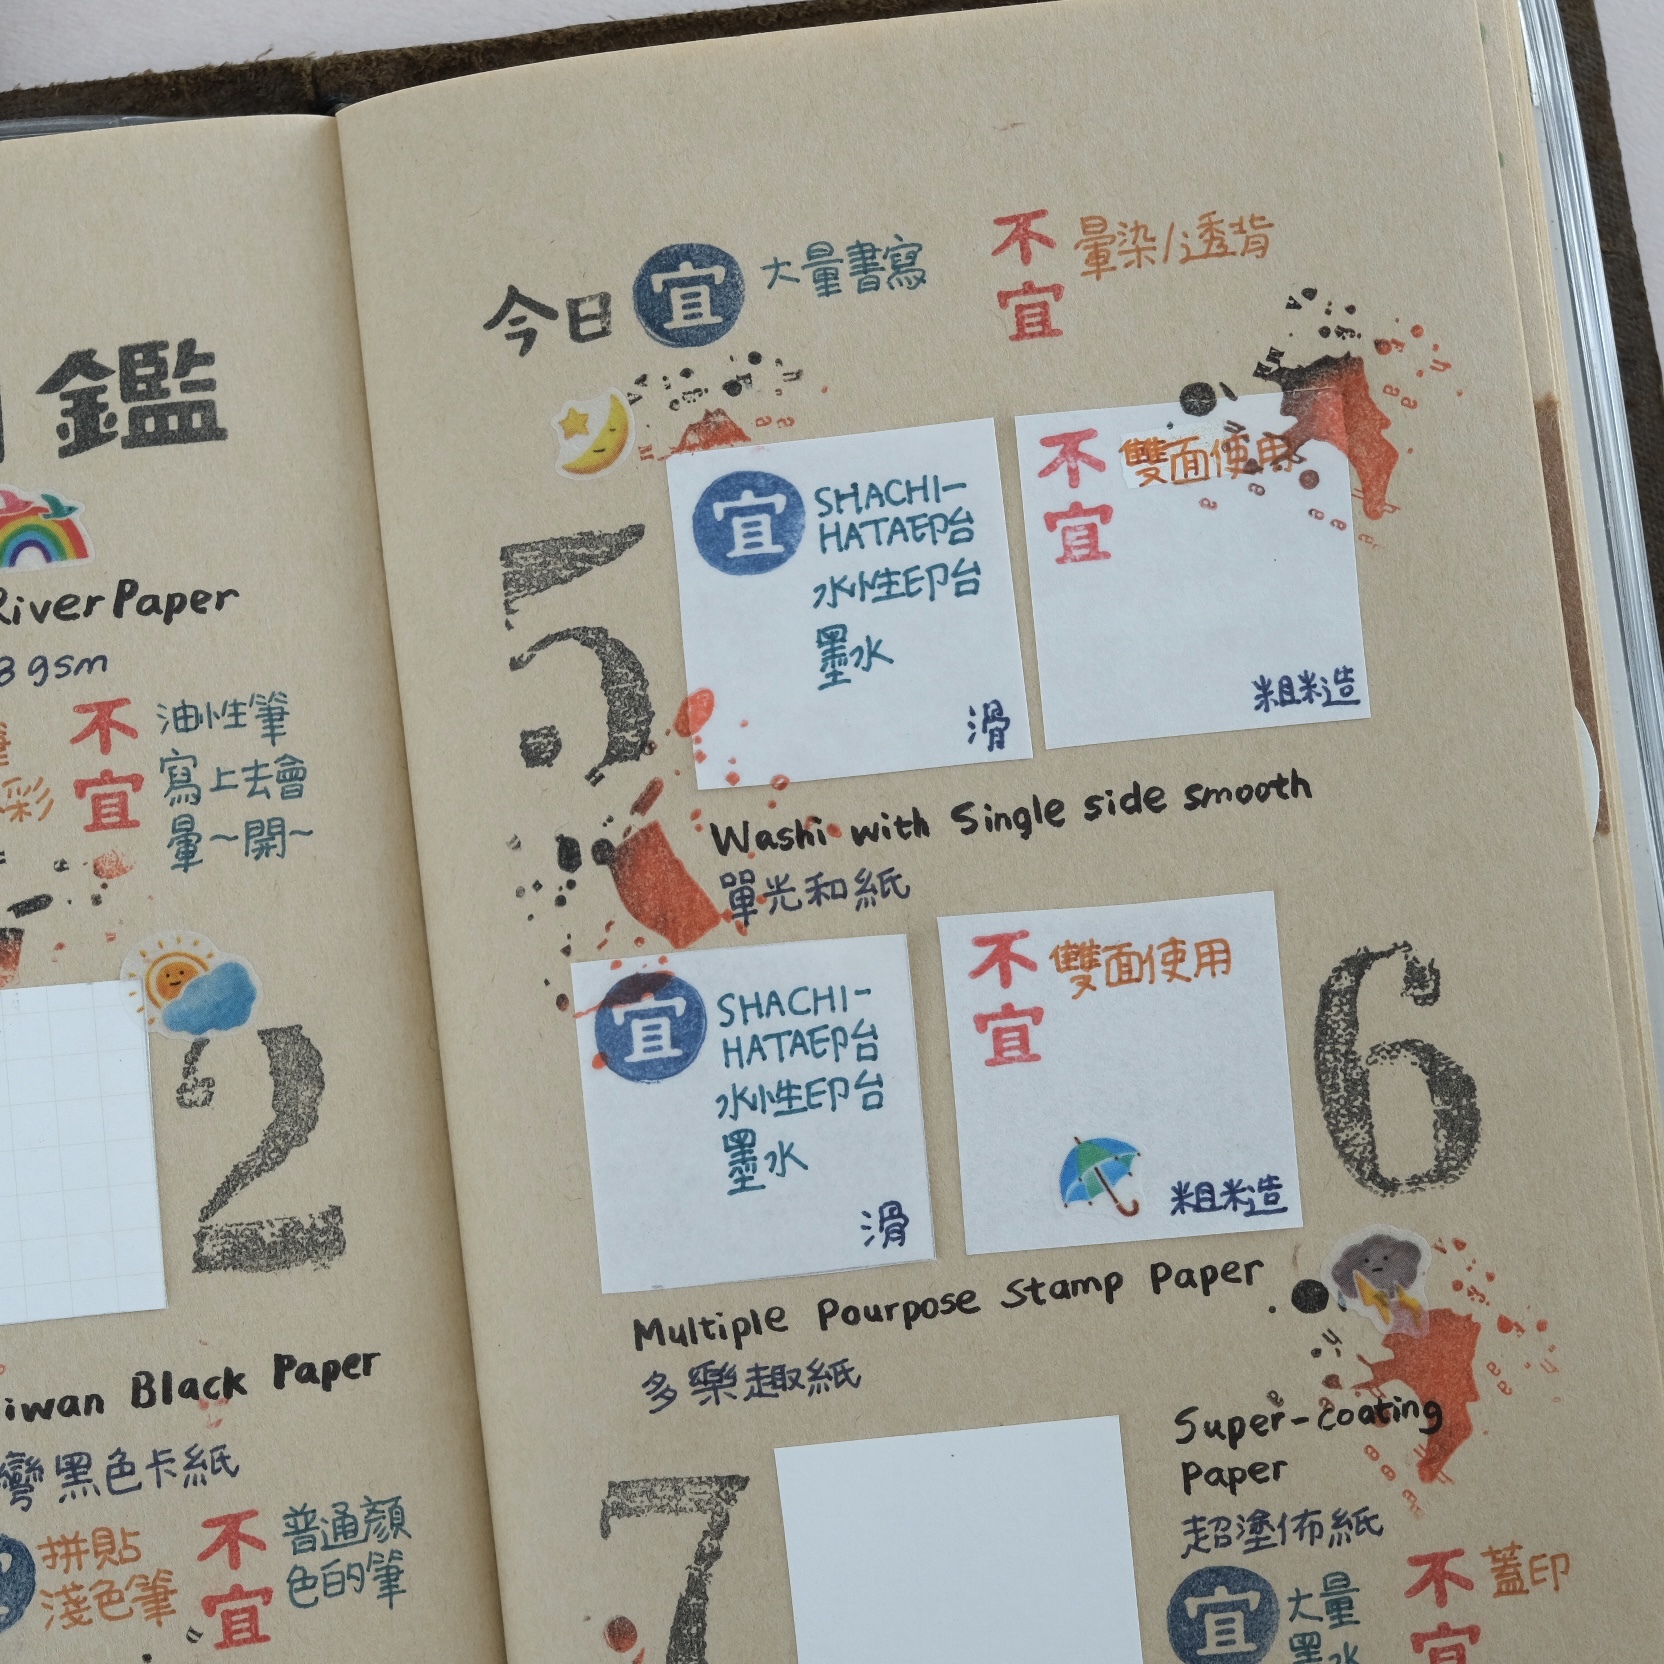 鑑
River Paper
gsm
彩
不宜
油性筆
寫上去會
暈~開~
2
iwan Black Paper
灣黑色卡紙
拼貼
淺色筆
不宜
普通顏
色的筆
今日 宜 大量書寫
不宜 暈染/透背
5
宜
SHACHI-
HATA印台
水性印台
墨水
滑
不宜
雙面使用
粗糙
Washi with Single side smooth
單光和紙
宜
SHACHI-
HATA印台
水性印台
墨水
滑
不宜
雙面使用
粗糙
6
Multiple Pourpose Stamp Paper
多樂趣紙
7
Super-coating
Paper
超塗佈紙
宜
大量
墨水
不宜
蓋印